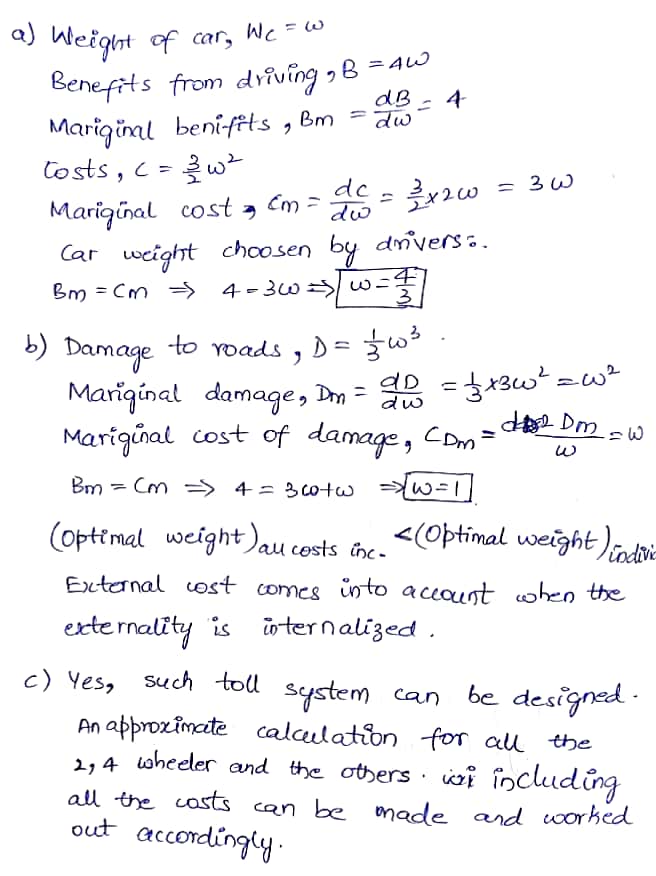 a) Weight of car, Wc = w
Benefits from driving, B = 4w
Mariginal benifits, Bm = dB/dw = 4
Costs, C = 3/2 w²
Mariginal cost, Cm = dc/dw = 3/2 × 2w = 3w
Car weight choosen by drivers:.
Bm = Cm ⇒ 4 = 3w ⇒ w = 4/3
b) Damage to roads, D = 1/3 w³.
Mariginal damage, Dm = dD/dw = 1/3 × 3w² = w²
Mariginal cost of damage, CDm = Dm/w = w
Bm = Cm ⇒ 4 = 3w+w ⇒ w=1
(Optimal weight) all costs inc. < (Optimal weight) indivi
External cost comes into account when the
externality is internalized.
c) Yes, such toll system can be designed.
An approximate calculation for all the
2, 4 wheeler and the others. including
all the costs can be made and worked
out accordingly.